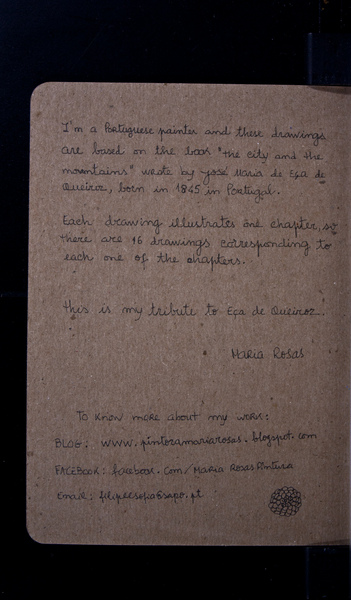 I'm a Portuguese painter and these drawings
are based on the book "the city and the
mountains" wrote by José Maria de Eça de
Queiroz, born in 1845 in Portugal.
Each drawing illustrates one chapter, so
there are 16 drawings corresponding to
each one of the chapters.
this is my tribute to Eça de Queiroz.
Maria Rosas
To know more about my work:
BLOG: www.pintoramariarosas.blogspot.com
FACEBOOK: facebook.com/Maria Rosas Pintura
Email: